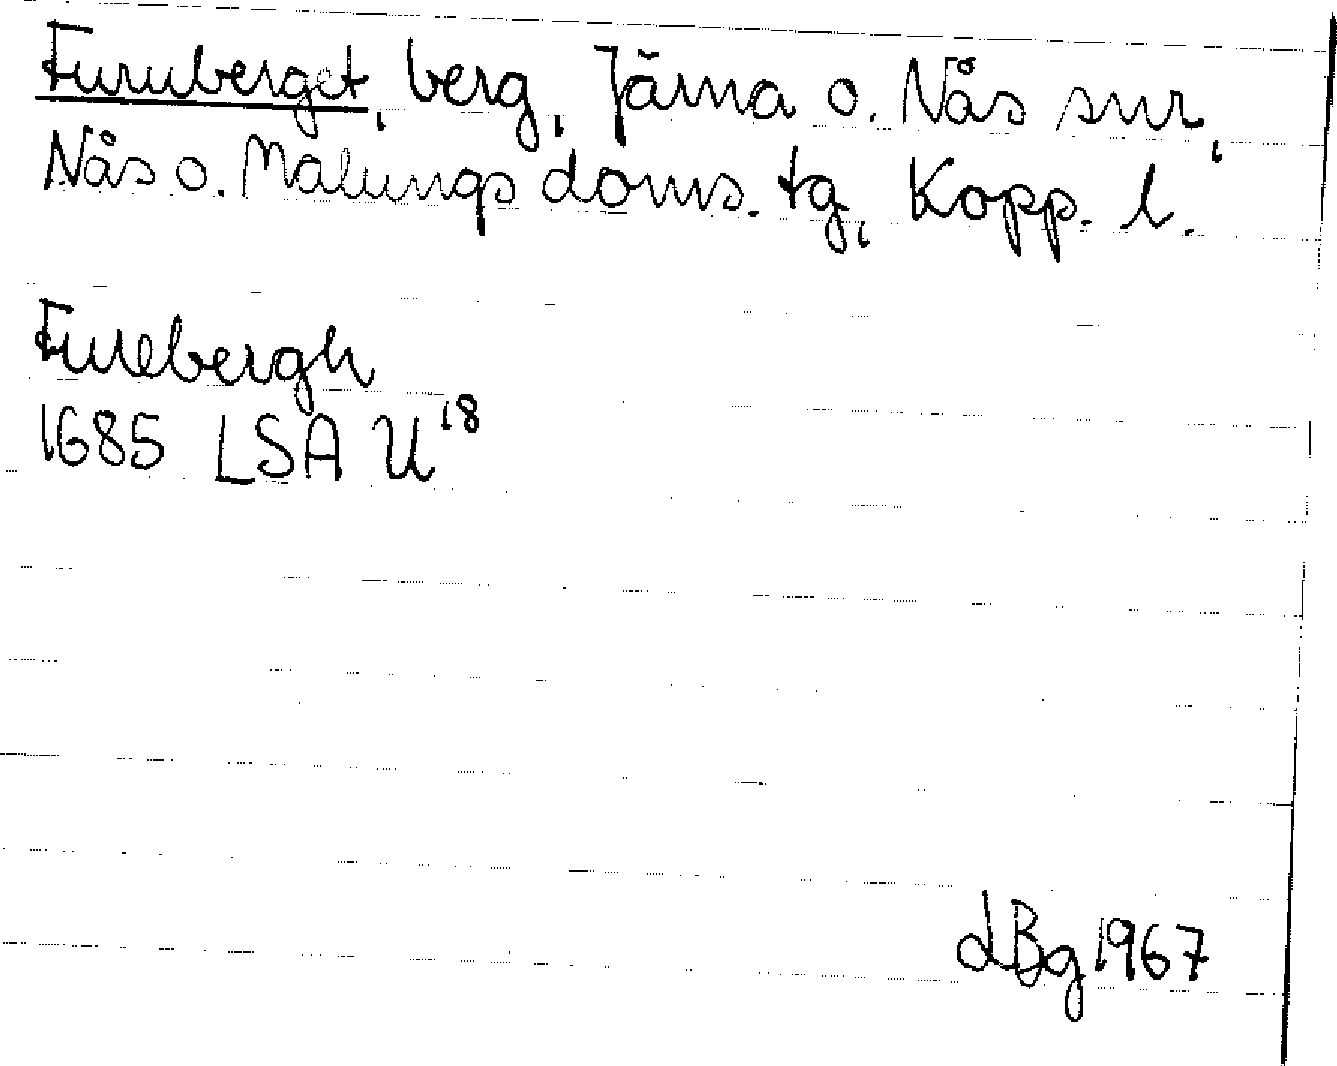 Furuberget, berg, Järna o. Nås snr,
Nås o. Malungs doms. tg, Kopp. l.
Furebergh
1685 LSA U18
LBg 1967